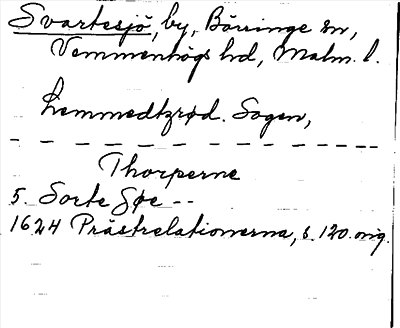 Svartesjö, by, Börringe sn,
Vemmenhögs hd, Malm. l.
Lemmedtzrød. Sogen,
Thorperne
5. Sorte Søe --
1624 Prästrelationerna, s. 120. orig.